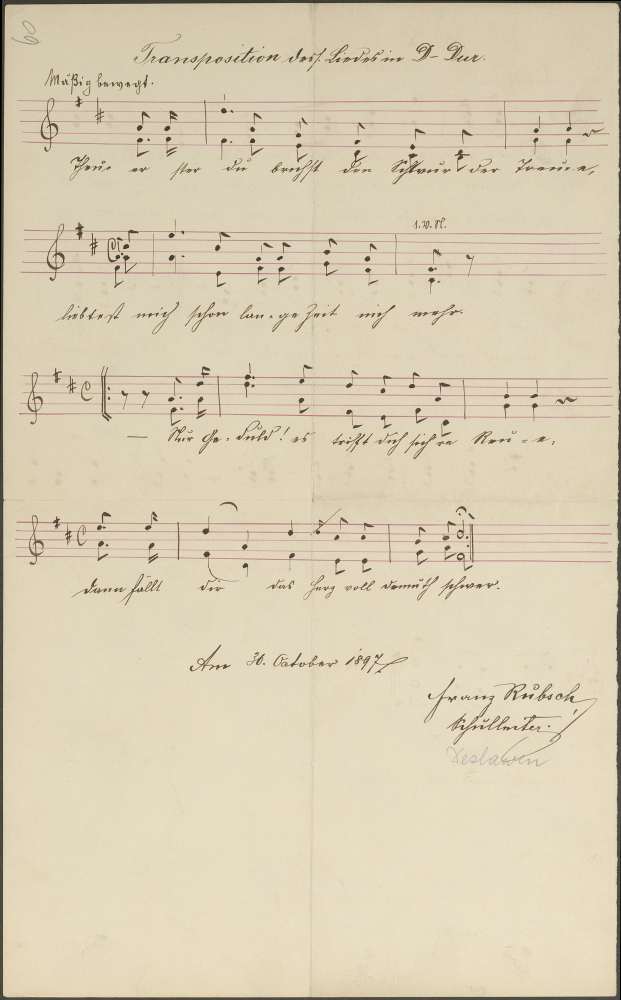 60
Transposition des Liedes in D-Dur.
Mäßig bewegt.
Theu- er ster du brichst den Schwur der Treu-e,
1. V. Sl.
liebtest mich schon lan-ge Zeit nich mehr.
— Nur Ge-duld! es trifft dich sich re Reu-e,
dann fällt dir das Herz voll demuth schwer.
Am 30. October 1897
Franz Rubsch
Schulleiter.